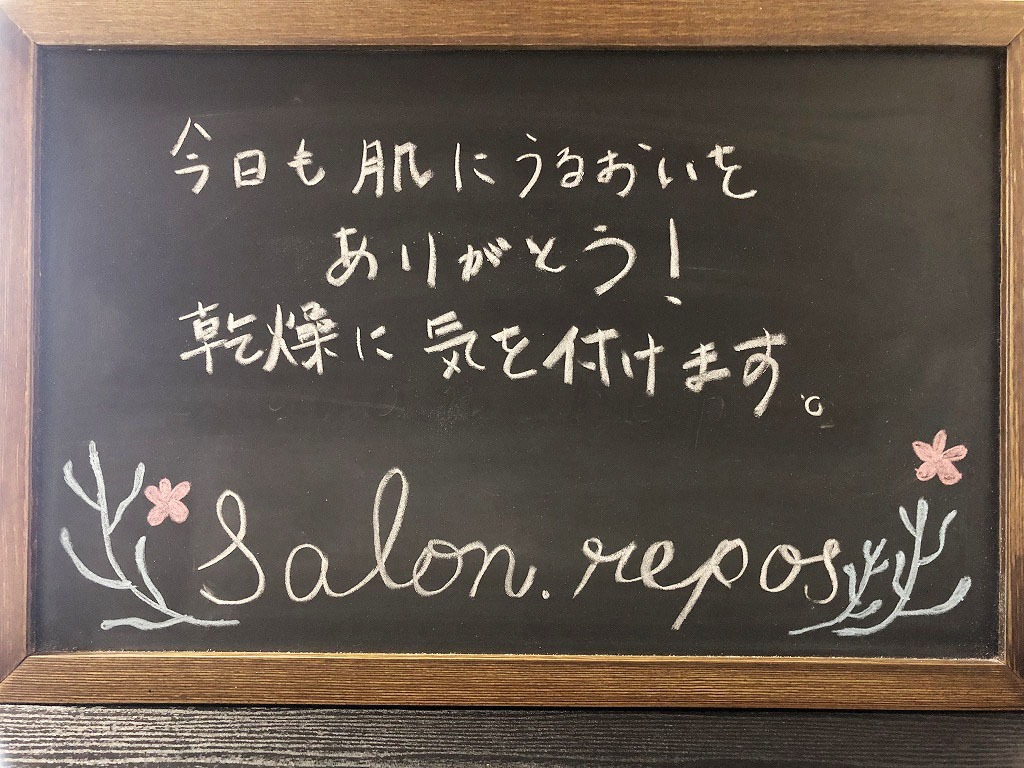 今日も肌にうるおいを
ありがとう!
乾燥に気を付けます。
Salon.repos